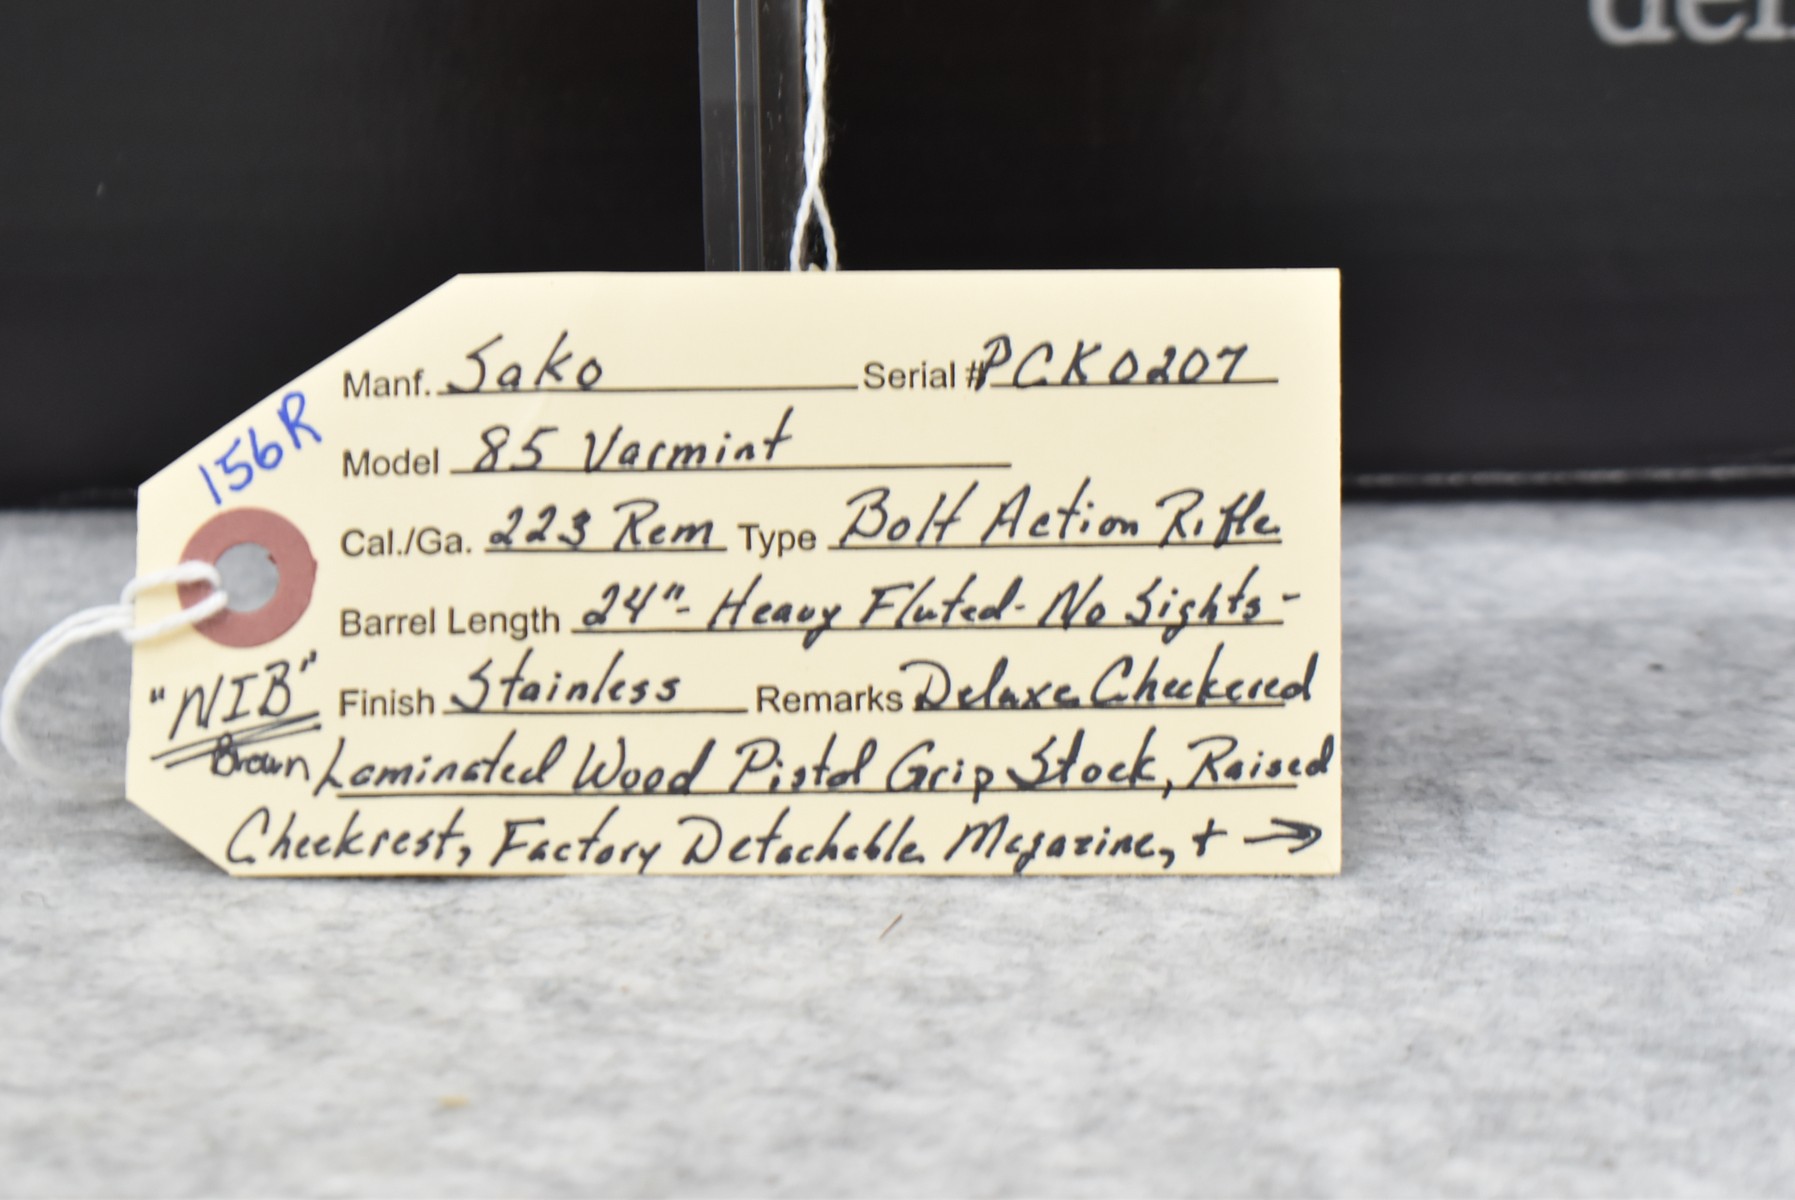 den
156R
Manf. Sako Serial # PCK0207
Model 85 Varmint
Cal./Ga. 223 Rem Type Bolt Action Rifle
Barrel Length 24"- Heavy Fluted- No Sights-
"NIB" Finish Stainless Remarks Deluxe Checkered
Brown Laminated Wood Pistol Grip Stock, Raised
Cheekrest, Factory Detachable Magazine, + →